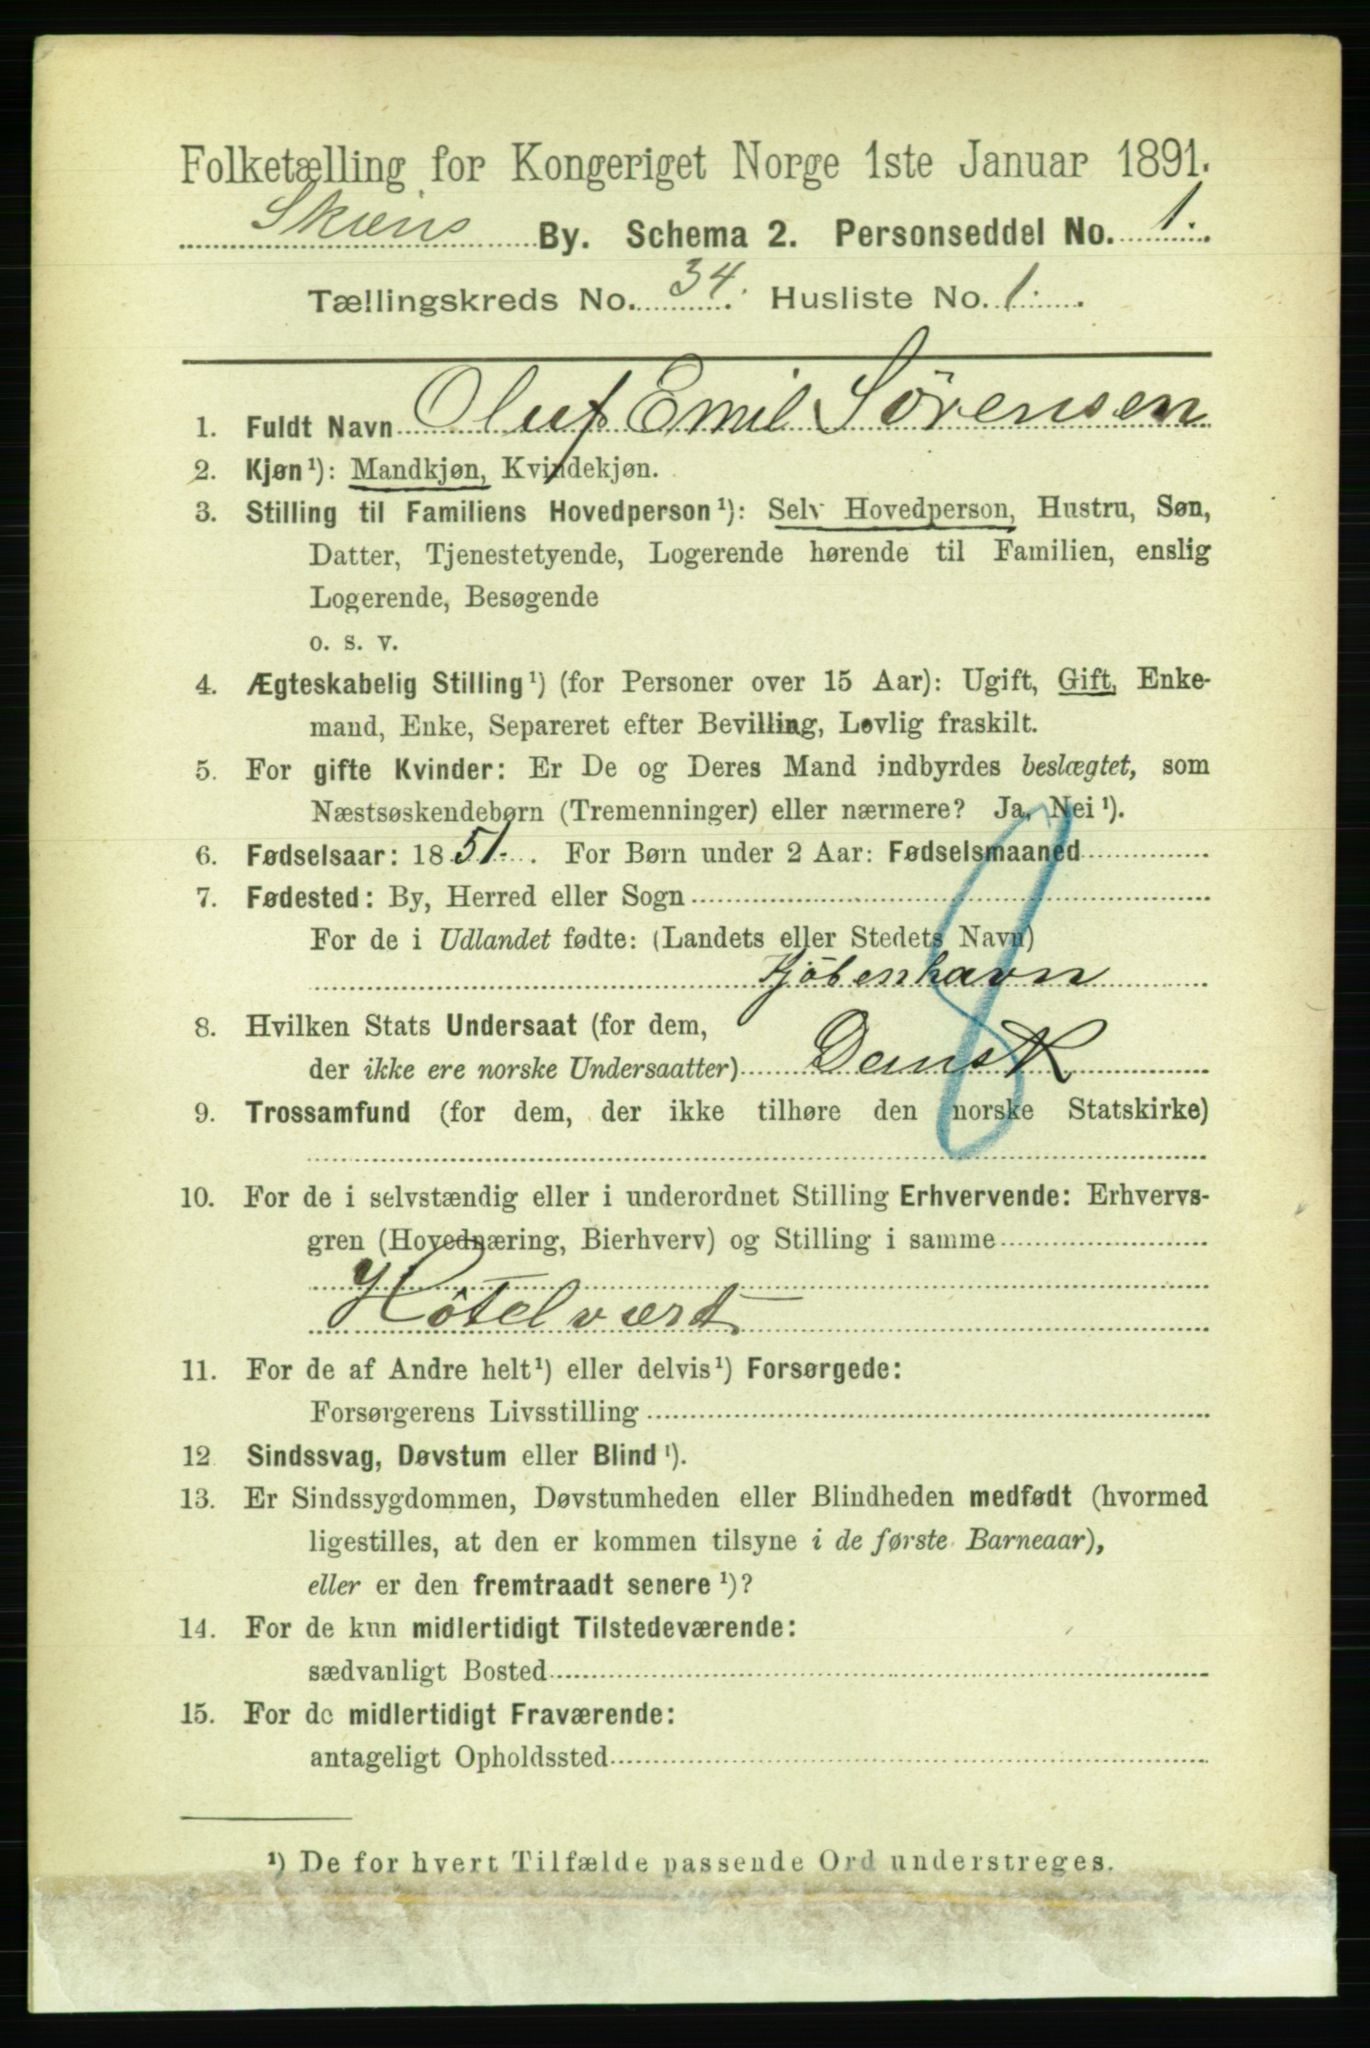 Folketælling for Kongeriget Norge 1ste Januar 1891.
Skiens By. Schema 2. Personseddel No. 1.
Tællingskreds No. 34. Husliste No. 1.
1. Fuldt Navn Oluf Emil Sörensen
2. Kjøn¹): Mandkjøn, Kvindekjøn.
3. Stilling til Familiens Hovedperson¹): Selv Hovedperson, Hustru, Søn,
Datter, Tjenestetyende, Logerende hørende til Familien, enslig
Logerende, Besøgende
o. s. v.
4. Ægteskabelig Stilling¹) (for Personer over 15 Aar): Ugift, Gift, Enke-
mand, Enke, Separeret efter Bevilling, Lovlig fraskilt.
5. For gifte Kvinder: Er De og Deres Mand indbyrdes beslægtet, som
Næstsøskendebørn (Tremenninger) eller nærmere? Ja, Nei¹).
6. Fødselsaar: 1851. For Børn under 2 Aar: Fødselsmaaned
7. Fødested: By, Herred eller Sogn
For de i Udlandet fødte: (Landets eller Stedets Navn)
Kjöbenhavn
8. Hvilken Stats Undersaat (for dem,
der ikke ere norske Undersaatter) Dansk
9. Trossamfund (for dem, der ikke tilhøre den norske Statskirke)
10. For de i selvstændig eller i underordnet Stilling Erhvervende: Erhvervs-
gren (Hovednæring, Bierhverv) og Stilling i samme
Hôtelvært
11. For de af Andre helt¹) eller delvis¹) Forsørgede:
Forsørgerens Livsstilling
12 Sindssvag, Døvstum eller Blind¹).
13. Er Sindssygdommen, Døvstumheden eller Blindheden medfødt (hvormed
ligestilles, at den er kommen tilsyne i de første Barneaar),
eller er den fremtraadt senere¹)?
14. For de kun midlertidigt Tilstedeværende:
sædvanligt Bosted
15. For de midlertidigt Fraværende:
antageligt Opholdssted
¹) De for hvert Tilfælde passende Ord understreges.